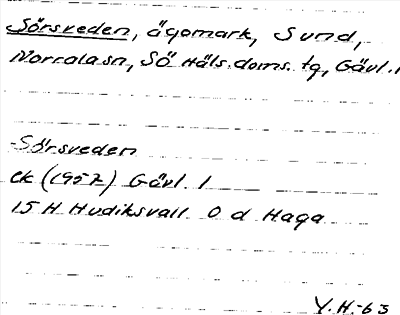 Sörsveden, ägomark, Sund,
Norrala sn, SÖ Häls. doms. tg, Gävl. l
-Sörsveden
ek (1957) Gävl. l
15 H Hudiksvall 0 d Haga
Y.H.-63